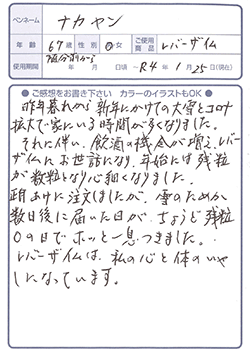 ペンネーム ナカヤン
年齢 67才 性別 男・女 ご使用商品 レバーザイム
使用期間 随分前から 年 月 日頃 ～ R4年 1月 25日(現在)
●ご感想をお書き下さい カラーのイラストもOK●
昨年暮れから新年にかけての大雪とコロナ
拡大で家にいる時間が多くなりました。
それに伴い、飲酒の機会が増え、レバー
ザイムにお世話になり、年始には残粒
が数粒となり心細くなりました。
正月あけに注文しましたが、雪のためか
数日後に届いた日が、ちょうど残粒
0の日でホッと一息つきました。
レバーザイムは、私の心と体のいや
しになっています。